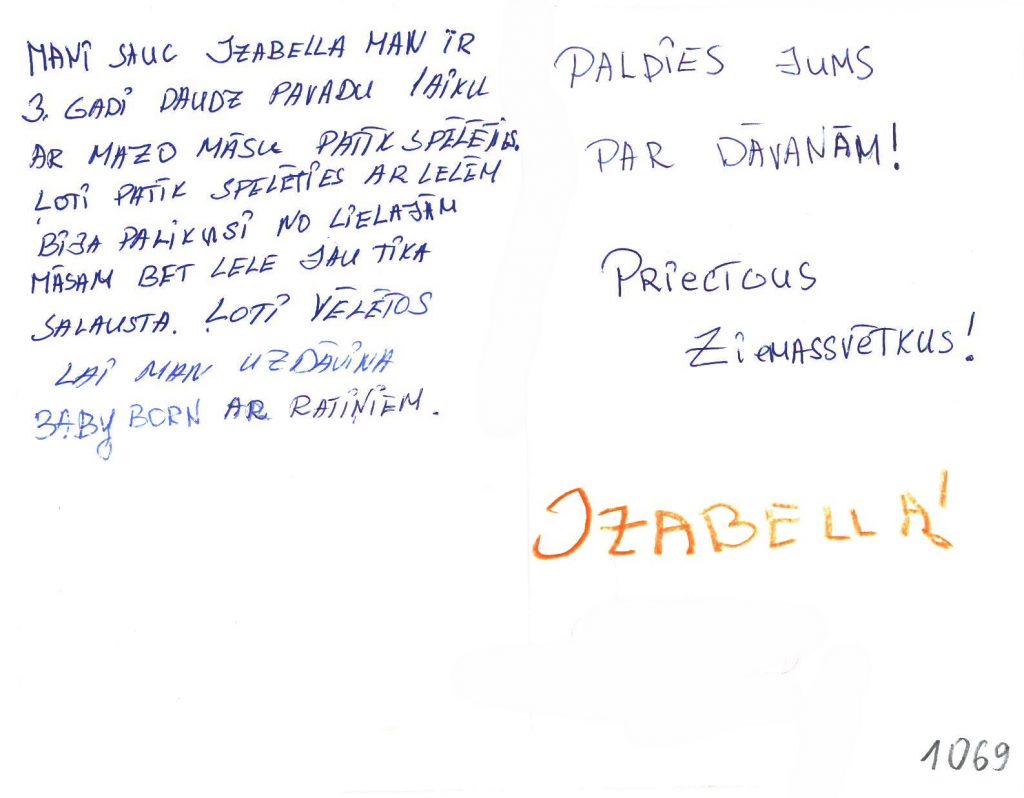 MANI SAUC IZABELLA MAN IR
3. GADI DAUDZ PAVADU LAIKU
AR MAZO MĀSU PATĪK SPĒLĒTIES.
ĻOTI PATĪK SPELĒTIES AR LELĒM
BIJA PALIKUSI NO LIELAJĀM
MĀSAM BET LELE JAU TIKA
SALAUSTA. ĻOTI VĒLĒTOS
LAI MAN UZDĀVINA
BABY BORN AR RATIŅIEM.
PALDIES JUMS
PAR DĀVANĀM!
PRIECĪGUS
ZIEMASSVĒTKUS!
IZABELLA!
1069